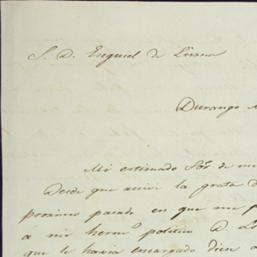 S. D. Ezequiel de Lizana
Durango
Mi estimado Sōr. de mi
Desde que recivi la grata de
proximo pasado en que me p
á mi herm.o politico D. Lo
que le havia encargado diera a